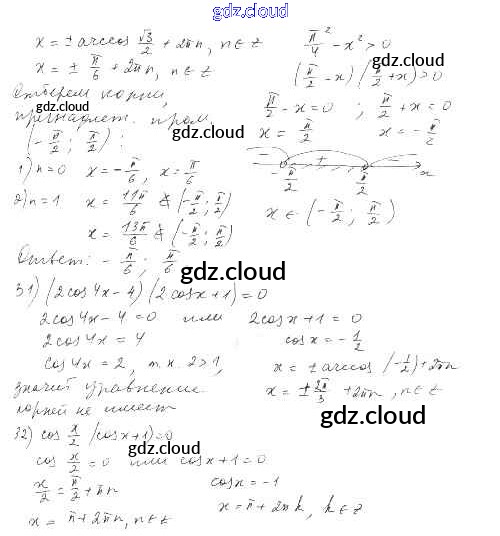 gdz.cloud
x = ± arccos √3/2 + 2πn, n ∈ z
x = ± π/6 + 2πn, n ∈ z
Отберем корни,
gdz.cloud
принадлеж. пром.
(-π/2; π/2):
1) n=0 x = -π/6, x = π/6
2) n=1 x = 11π/6 ∉ (-π/2; π/2)
x = 13π/6 ∉ (-π/2; π/2)
Ответ: -π/6; π/6
π²/4 - x² > 0
gdz.cloud
(π/2 - x)(π/2 + x) > 0
π/2 - x = 0 ; π/2 + x = 0
gdz.cloud
x = π/2 x = -π/2
- + -
-π/2 π/2 x
x ∈ (-π/2; π/2)
gdz.cloud
31) (2cos4x-4)(2cosx+1)=0
2cos4x-4=0 или 2cosx+1=0
2cos4x=4 cosx=-1/2
cos4x=2, т.к. 2>1, x = ± arccos(-1/2)+2πn
gdz.cloud
значит уравнение x = ± 2π/3 + 2πn, n ∈ z
корней не имеет
gdz.cloud
32) cos x/2 (cosx+1)=0
gdz.cloud
cos x/2 = 0 или cosx+1=0
x/2 = π/2 + πn cosx=-1
x = π+2πn, n ∈ z x = π+2πk, k ∈ z
gdz.cloud